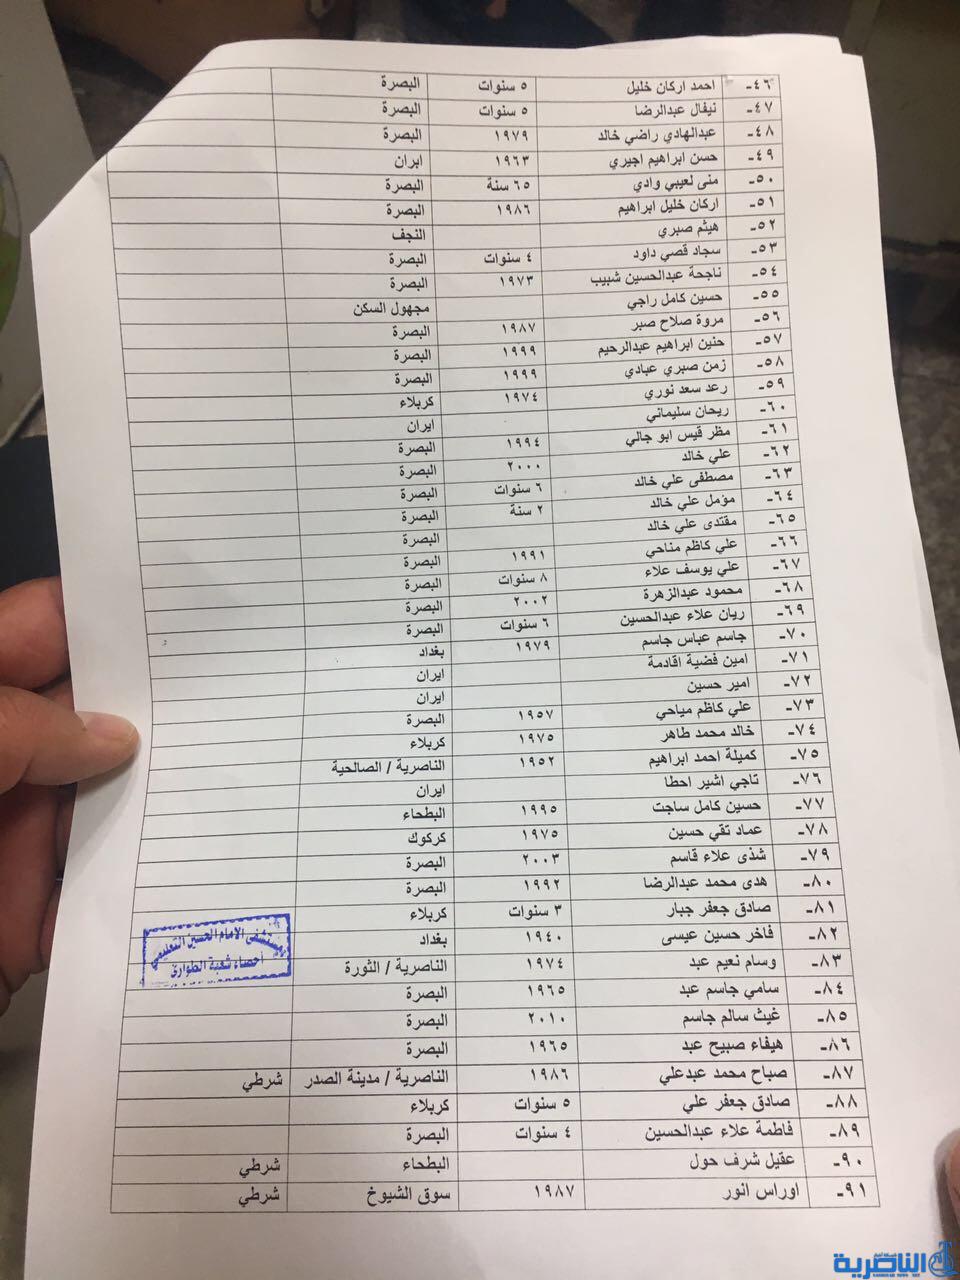 ٤٦- احمد اركان خليل ٥ سنوات البصرة
٤٧- نيفال عبدالرضا ٥ سنوات البصرة
٤٨- عبدالهادي راضي خالد ١٩٧٩ البصرة
٤٩- حسن ابراهيم اجيري ١٩٦٣ ايران
٥٠- منى لعيبي وادي ٦٥ سنة البصرة
٥١- اركان خليل ابراهيم ١٩٨٦ البصرة
٥٢- هيثم صبري النجف
٥٣- سجاد قصي داود ٤ سنوات البصرة
٥٤- ناجحة عبدالحسين شبيب ١٩٧٣ البصرة
٥٥- حسين كامل راجي مجهول السكن
٥٦- مروة صلاح صبر ١٩٨٧ البصرة
٥٧- حنين ابراهيم عبدالرحيم ١٩٩٩ البصرة
٥٨- زمن صبري عبادي ١٩٩٩ البصرة
٥٩- رعد سعد نوري ١٩٧٤ كربلاء
٦٠- ريحان سليماني ايران
٦١- مظر قيس ابو جالي ١٩٩٤ البصرة
٦٢- علي خالد ٢٠٠٠ البصرة
٦٣- مصطفى علي خالد ٦ سنوات البصرة
٦٤- مؤمل علي خالد ٢ سنة البصرة
٦٥- مقتدى علي خالد البصرة
٦٦- علي كاظم مناحي ١٩٩١ البصرة
٦٧- علي يوسف علاء ٨ سنوات البصرة
٦٨- محمود عبدالزهرة ٢٠٠٢ البصرة
٦٩- ريان علاء عبدالحسين ٦ سنوات البصرة
٧٠- جاسم عباس جاسم ١٩٧٩ بغداد
٧١- امين فضية اقادمة ايران
٧٢- امير حسين ايران
٧٣- علي كاظم مياحي ١٩٥٧ البصرة
٧٤- خالد محمد طاهر ١٩٧٥ كربلاء
٧٥- كميلة احمد ابراهيم ١٩٥٢ الناصرية / الصالحية
٧٦- تاجي اشير احطا ايران
٧٧- حسين كامل ساجت ١٩٩٥ البطحاء
٧٨- عماد تقي حسين ١٩٧٥ كركوك
٧٩- شذى علاء قاسم ٢٠٠٣ البصرة
٨٠- هدى محمد عبدالرضا ١٩٩٢ البصرة
٨١- صادق جعفر جبار ٣ سنوات كربلاء
٨٢- فاخر حسين عيسى ١٩٤٠ بغداد
مستشفى الامام الحسين التعليمي
احصاء شعبة الطوارئ
٨٣- وسام نعيم عبد ١٩٧٤ الناصرية / الثورة
٨٤- سامي جاسم عبد ١٩٦٥ البصرة
٨٥- غيث سالم جاسم ٢٠١٠ البصرة
٨٦- هيفاء صبيح عبد ١٩٦٥ البصرة
٨٧- صباح محمد عبدعلي ١٩٨٦ الناصرية / مدينة الصدر شرطي
٨٨- صادق جعفر علي ٥ سنوات كربلاء
٨٩- فاطمة علاء عبدالحسين ٤ سنوات البصرة
٩٠- عقيل شرف حول البطحاء شرطي
٩١- اوراس انور ١٩٨٧ سوق الشيوخ شرطي
شبكة اخبار
الناصرية